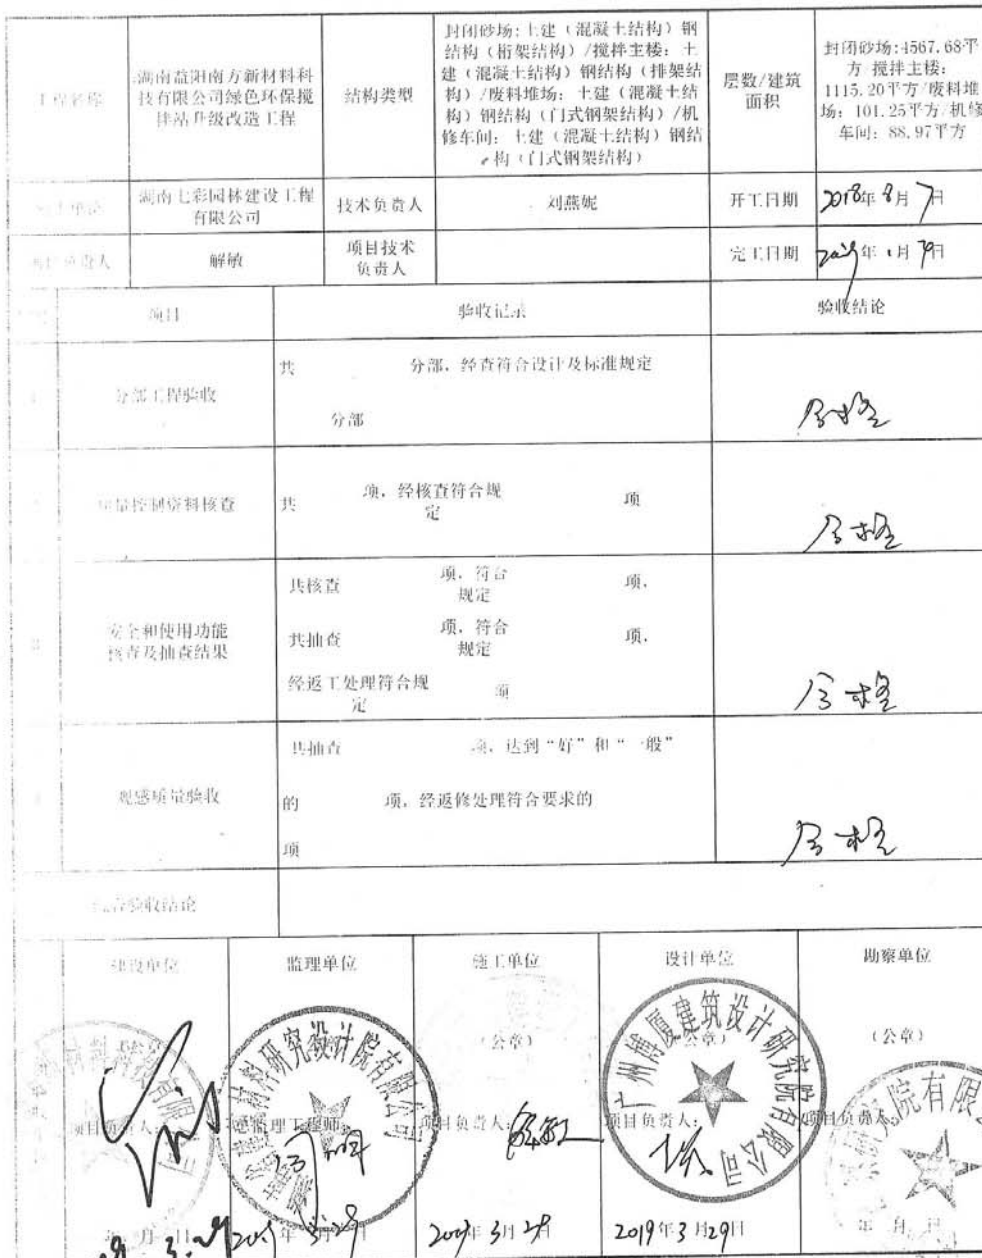 工程名称
湖南益阳南方新材料科
技有限公司绿色环保搅
拌站升级改造工程
结构类型
封闭砂场：土建（混凝土结构）钢
结构（桁架结构）/搅拌主楼：土
建（混凝土结构）钢结构（排架结
构）/废料堆场：土建（混凝土结
构）钢结构（门式钢架结构）/机
修车间：土建（混凝土结构）钢结
构（门式钢架结构）
层数/建筑
面积
封闭砂场:4567.68平
方/搅拌主楼:
1115.20平方/废料堆
场：101.25平方/机修
车间：88.97平方
湖南七彩园林建设工程
有限公司
技术负责人
刘燕妮
开工日期
2018年8月7日
负责人
解敏
项目技术
负责人
完工日期
年 月 日
项目
验收记录
验收结论
分部工程验收
共 分部，经查符合设计及标准规定
分部
合格
质量控制资料核查
共 项，经核查符合规
定
项
合格
安全和使用功能
核查及抽查结果
共核查 项，符合
规定
项，
共抽查 项，符合
规定
项，
经返工处理符合规
定
项
合格
观感质量验收
共抽查 项，达到“好”和“一般”
的 项，经返修处理符合要求的
项
合格
综合验收结论
建设单位
监理单位
施工单位
设计单位
勘察单位
（公章）
（公章）
（公章）
广州博厦建筑设计研究院有限公司
研究设计院有限公司
院有限
项目负责人：
总监理工程师：
项目负责人：
解敏
项目负责人：
项目负责人：
年 月 日
年 3月29日
2019年3月29日
年 月 日